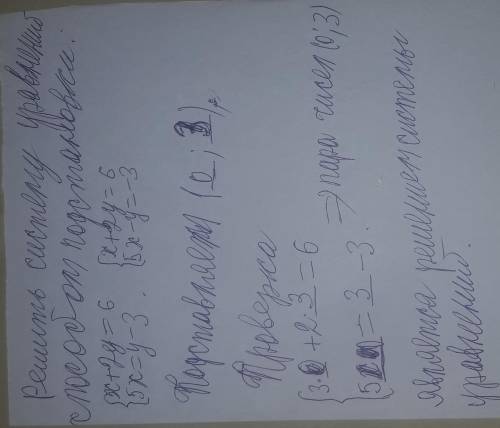 Решить систему уравнений
способом подстановки:
{x+2y=6 {x+2y=6
{5x=y-3. {5x-y=-3
Подставляем (0; 3),
Проверка
{3·0+2·3=6
{5 = 3-3. ⇒ пара чисел (0; 3)
является решением системы
уравнений.